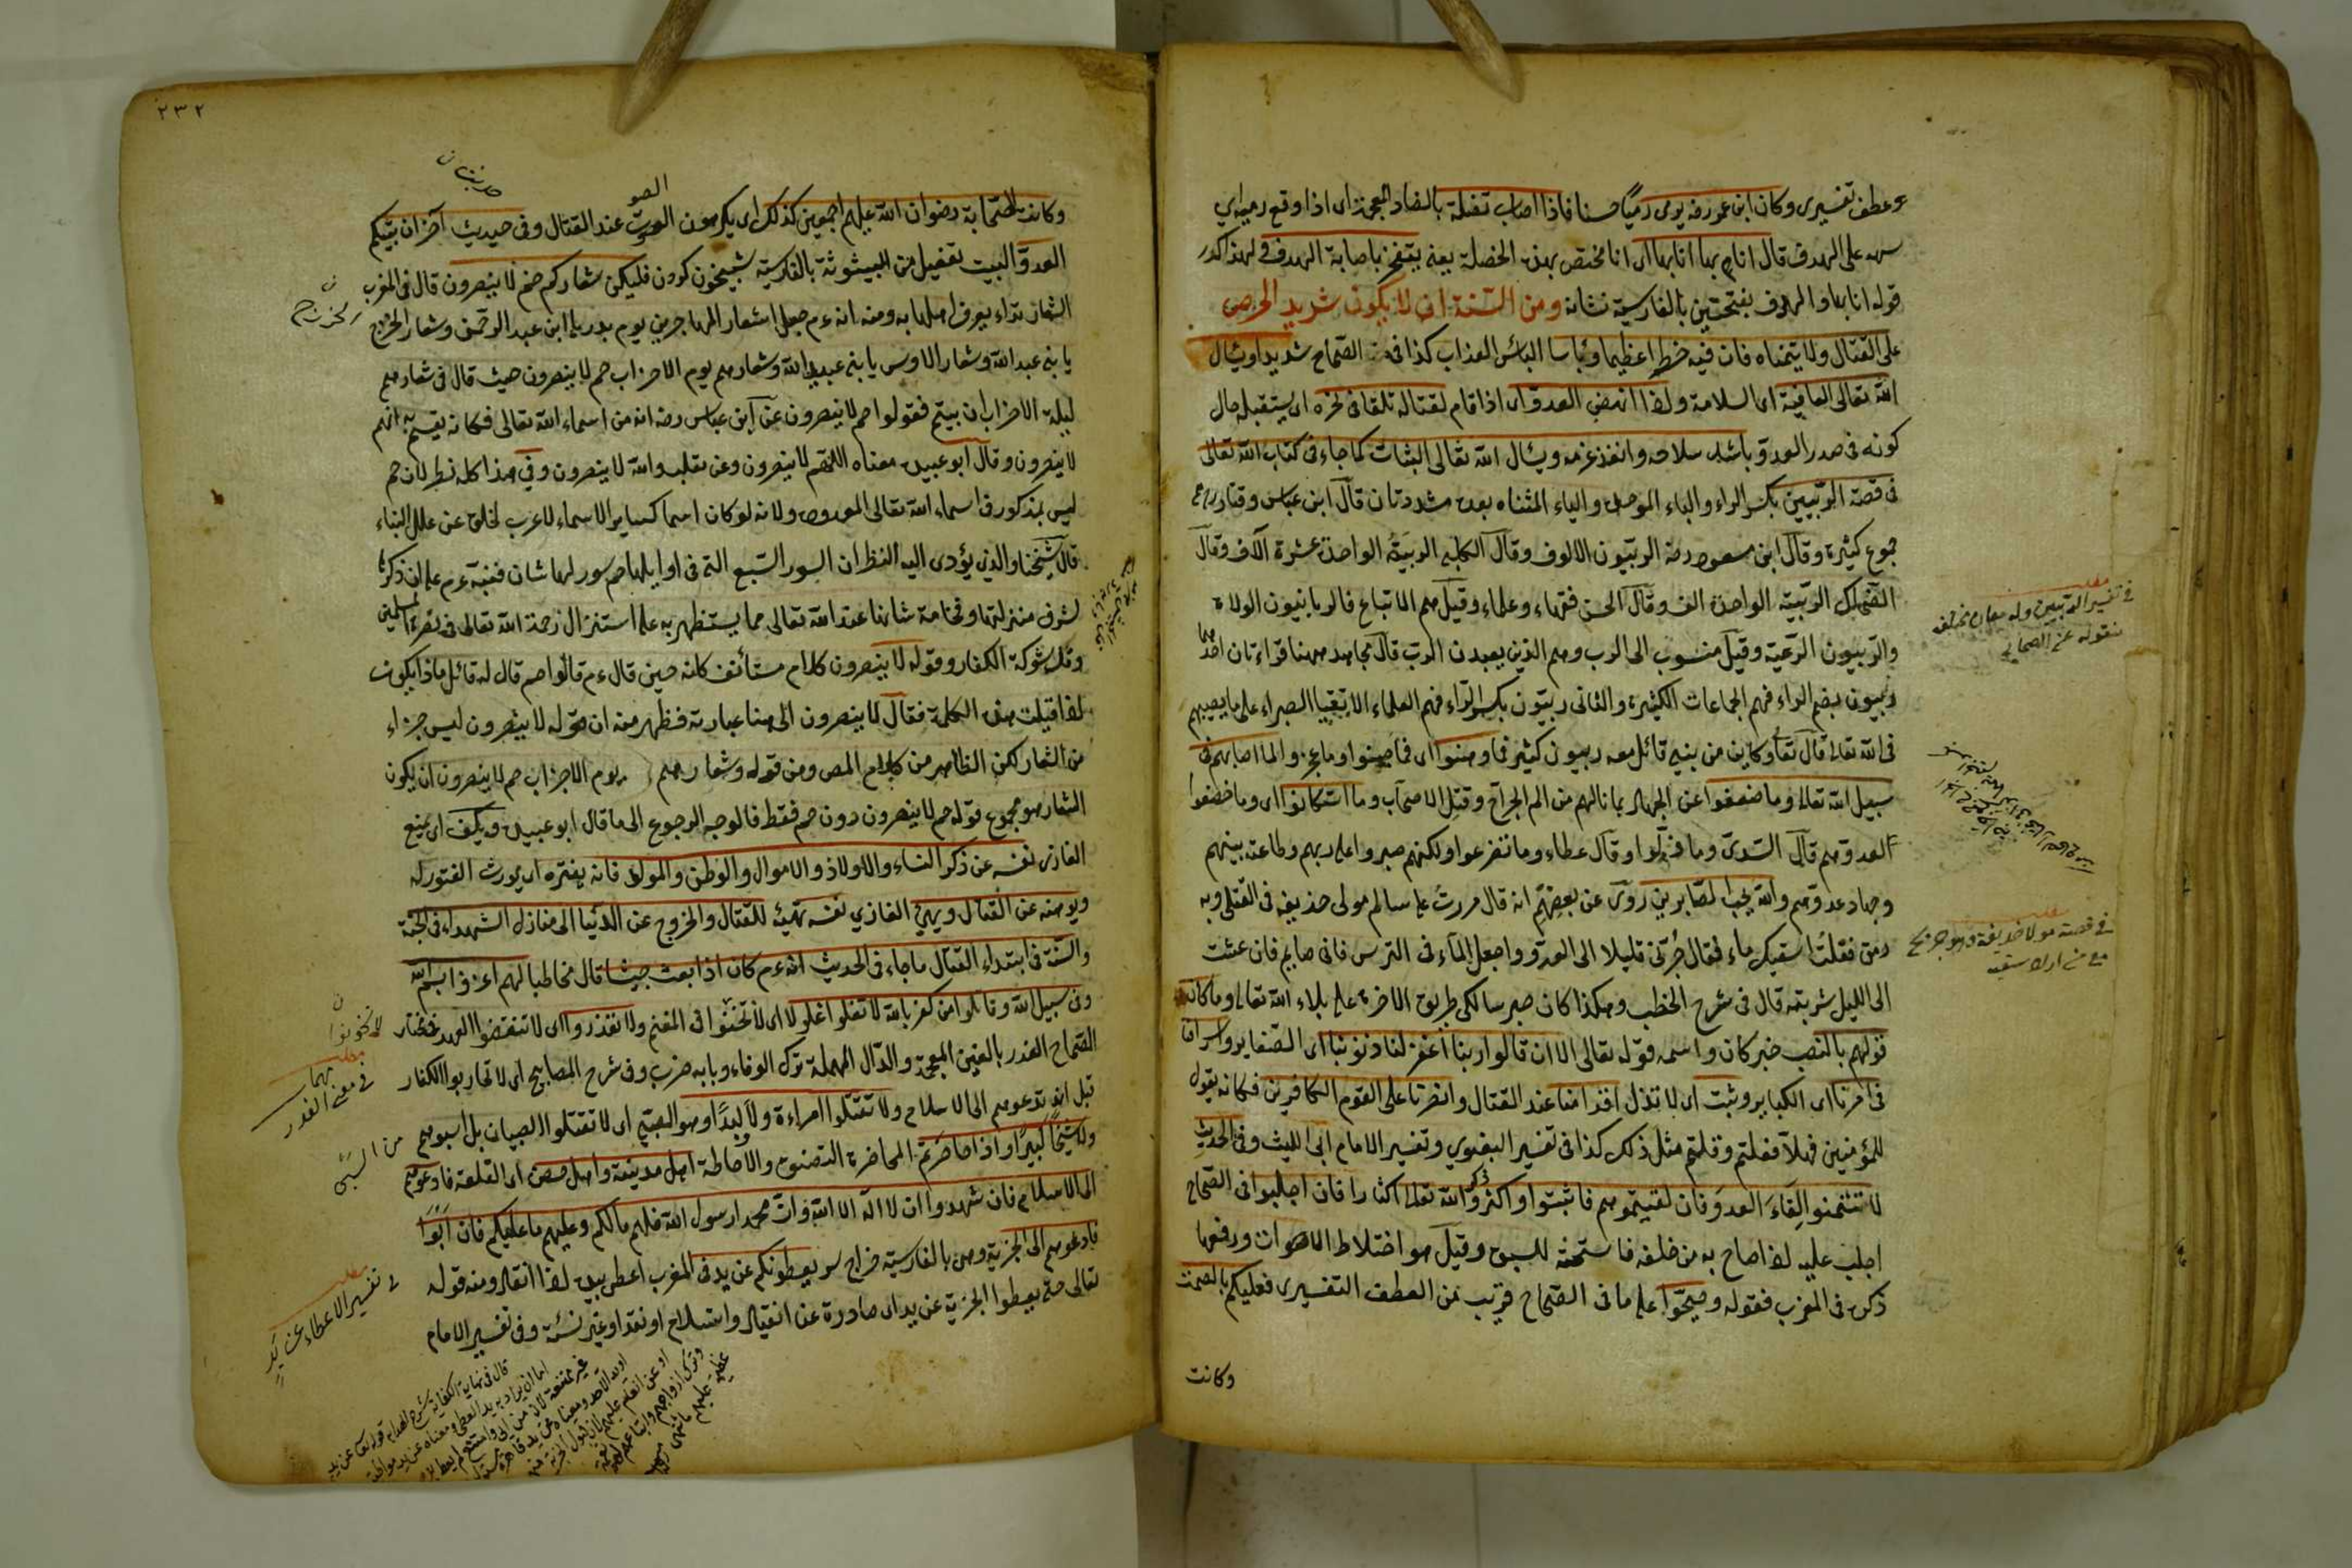 وعطف تفسيرى وكان ابن عمر رضه يومى رميًا حسنا فاذا اصاب تفصلة بالضاد المعجمة اى اذا وقع رميه اي
سهمه على الهدف قال انا بها انا بها اى انا مختص بهذه الخصلة يعنى يفتخر باصابة الهدف فى لهذا كدر
قوله انا بها والهدف بفتحتين بالفارسية نشانه ومن السنة ان لا يكون شديد الحرص
على القتال ولا يتمناه فان فيه خطرا عظيما وبأسا البأس العذاب كذا فى الصحاح شديدا ويسأل
الله تعالى العافية اى السلامة ولذا انهض العدو اى اذا قام لقتاله تلقا فى نحره اى يستقبله حال
كونه فى صدر العدو باشد سلاحه وانفذ عزمه ويسأل الله تعالى الثبات كما جاء فى كتاب الله تعالى
فى قصة الربيين بكسر الراء والباء الموحدة والياء المثناه بعده مشددتان قال ابن عباس وقتادة رضهم
جموع كثيرة وقال ابن مسعود رضه الربيون الالوف وقال الكلبى الربية الواحدة عشرة آلاف وقال
الضحاك الربية الواحدة الف وقال الحسن فقهاء وعلماء وقيل هم الاتباع فالربانيون الولاة
والربيون الرعية وقيل منسوب الى الرب وهم الذين يعبدون الرب قال مجاهد ههنا قراءتان احدهما
ربيون بضم الراء فهم الجماعات الكثيرة والثانى ربيون بكسر الراء فهم العلماء الاتقياء الصبراء على ما يصيبهم
فى الله تعالى قال تعا وكاين من نبى قاتل معه ربيون كثير فما وهنوا اى فما جبنوا وما عجزوا لما اصابهم فى
سبيل الله تعالى وما ضعفوا عن الجهاد بما نالهم من الم الجراح وقتل الاصحاب وما استكانوا اى وما خضعوا
لعدوهم قال السدى وما ذلوا وقال عطاء وما تضرعوا ولكنهم صبروا على ربهم وطاعة نبيهم
وجهاد عدوهم والله يحب الصابرين روى عن بعضهم انه قال مررت على سالم مولى حذيفه فى القتلى وبه
رمق فقلت اسقيك ماء فقال جرنى قليلا الى العدو واجعل الماء فى الترس فانى صايم فان عشت
الى الليل شربته قال فى شرح الخطب وهكذا كان صبر سالكى طريق الاخرة على بلاء الله تعالى وما كان
قولهم بالنصب خبر كان واسمه قوله تعالى الا ان قالوا ربنا اغفر لنا ذنوبنا اى الصغاير واسرافنا
فى امرنا اى الكباير وثبت اى لا تذل اقدامنا عند القتال وانصرنا على القوم الكافرين فكانه يقول
للمؤمنين فهلا فعلتم وقلتم مثل ذلك كذا فى تفسير البغوي وتفسير الامام ابى الليث وفى الحديث
لا تتمنوا لقاء العدو فان لقيتموهم فاثبتوا واكثروا ذكر الله تعالى اكثارا فان اجلبوا فى الصحاح
اجلب عليه اذا صاح به من خلفه فاستحثه للسبق وقيل هو اختلاط الاصوات ورفعها
ذكره فى المغرب فقوله وصيحوا على ما فى الصحاح قريب من العطف التفسيرى فعليكم بالصمت
وكانت
مطلب
فى تفسير الربيين وله معان مختلفه
منقوله عن الصحابى
مطلب
فى قصة مولا حذيفة وهو جريح
٢٣٢
وكانت الصحابة رضوان الله عليهم اجمعين كذلك اى يكرهون الصوت عند القتال وفى حديث آخر ان بيتكم
العدو البيت تفعيل من البيتوتة بالفارسية شبيخون كردن فليكن شعاركم حم لا ينصرون قال فى المغرب
الشعار نداء يعرف اهلها به ومنه انه عم جعل شعار المهاجرين يوم بدر يا ابن عبد الرحمن وشعار الخزرج
يا بنى عبد الله وشعار الاوس يا بنى عبيد الله وشعارهم يوم الاحزاب حم لا ينصرون حيث قال فى شعارهم
ليلة الاحزاب ان بيتم فقولوا حم لا ينصرون عن ابن عباس رضه انه من اسماء الله تعالى فكانه يقسم به انهم
لا ينصرون وقال ابو عبيده معناه اللهم لا ينصرون وعن ثعلب والله لا ينصرون وفى هذا كله نظر لان حم
ليس بمذكور فى اسماء الله تعالى المعدودة ولانه لو كان اسما كساير الاسماء لاعرب لخلوه عن علل البناء
قال شيخنا والذى يؤدى اليه النظر ان السور السبع التى فى اوايلها حم سور لها شان فنبه عم على ان ذكرها
لشرف منزلتها وفخامة شانها عند الله تعالى مما يستظهر به على استنزال رحمة الله تعالى فى نصرة المسلمين
وفل شوكة الكفار وقوله لا ينصرون كلام مستأنف كانه حين قال عم قولوا حم قال له قائل ماذا يكون
اذا قيلت هذه الكلمة فقال لا ينصرون الى هنا عبارته فظهر منه ان قوله لا ينصرون ليس جزاء
من الشعار لكن الظاهر من كلام المص ومن قوله وشعارهم يوم الاحزاب حم لا ينصرون ان يكون
الشعار هو مجموع قوله حم لا ينصرون دون حم فقط فالوجه الرجوع الى ما قال ابو عبيده ويكف اى يمنع
الغازى نفسه عن ذكر النساء والاولاد والاموال والوطن والمولد فانه يفتره اى يورث الفتور له
ويوهنه عن القتال ويهيئ الغازي نفسه تهيئة للقتال والخروج عن الدنيا الى منازل الشهداء فى الجنة
والسنة فى ابتداء القتال ما جاء فى الحديث انه عم كان اذا بعث جيشا قال مخاطبا لهم اغزوا بسم الله
وفى سبيل الله وقاتلوا من كفر بالله لا تغلوا غلولا اى لا تخونوا فى المغنم ولا تغدروا اى لا تنقضوا العهد فى مختار
الصحاح الغدر بالغين المعجمة والدال المهملة ترك الوفاء وبابه ضرب وفى شرح المصابيح اى لا تحاربوا الكفار
قبل ان تدعوهم الى الاسلام ولا تقتلوا امراءة ولا وليدًا وهو الصبى اى لا تقتلوا الصبيان بل اسبوهم
ولا شيخًا كبيرًا واذا حاصرتم المحاصرة التضييق والاحاطة اهل مدينة واهل حصن اى القلعة فادعوهم
الى الاسلام فان شهدوا ان لا اله الا الله وان محمدا رسول الله فلهم ما لكم وعليهم ما عليكم فان ابوا
فادعوهم الى الجزية وهى بالفارسية خراج سر يعطونكم عن يد فى المغرب اعطى بيده اذا انقاد ومنه قوله
تعالى حتى يعطوا الجزية عن يد اى صادرة عن انقياد واستسلام او نقدا وغير نسئة وفى تفسير الامام
الصو
مطلب مهم
فى معنى الغدر
من السبى
مطلب
فى تفسير الاعطاء عن يد